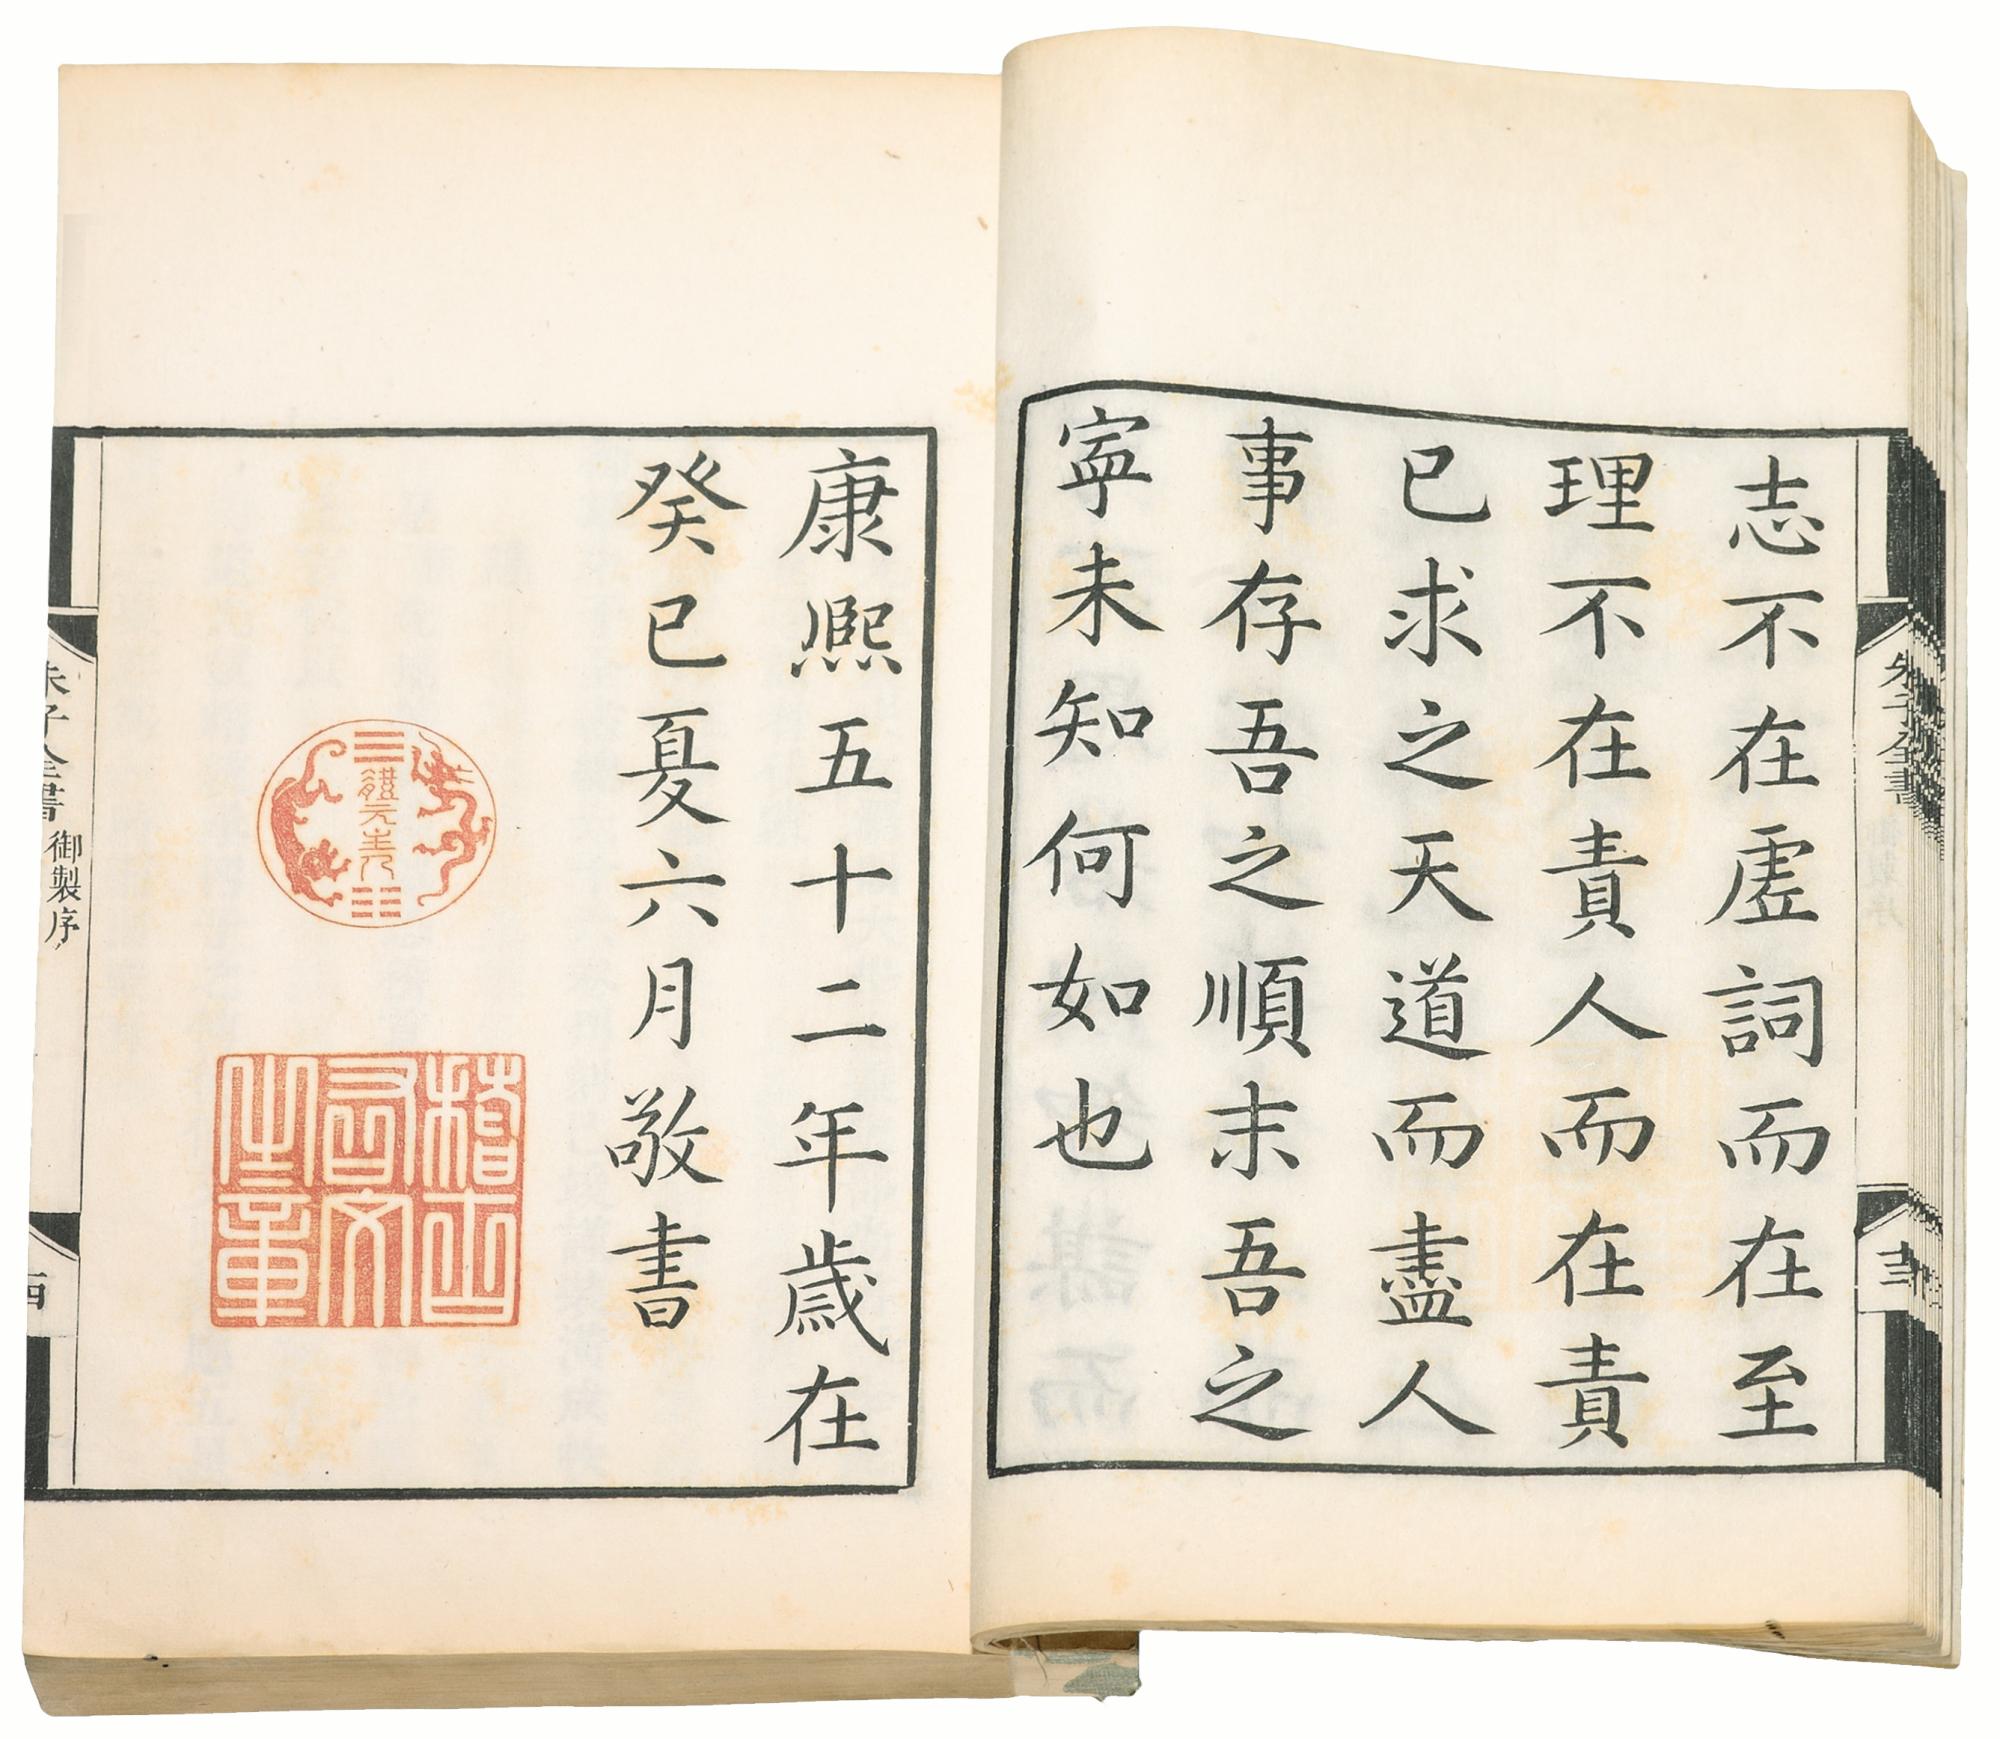 朱子全書
十三
志不在虛詞而在至
理不在責人而在責
已求之天道而盡人
事存吾之順末吾之
寧未知何如也
康熙五十二年歲在
癸巳夏六月敬書
體元主人
稽古
右文
之章
朱子全書 御製序